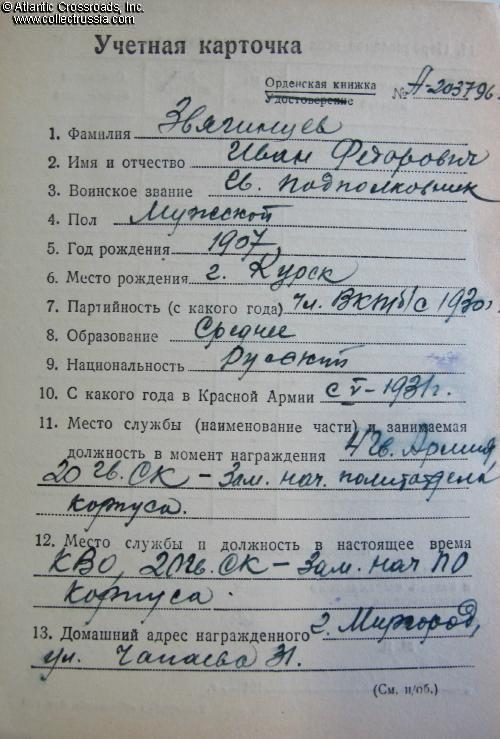 © Atlantic Crossroads, Inc.
www.collectrussia.com
Учетная карточка
Орденская книжка
Удостоверение № А-203796
1. Фамилия Звягинцев
2. Имя и отчество Иван Федорович
3. Воинское звание Гв. подполковник
4. Пол Мужской
5. Год рождения 1907
6. Место рождения г. Курск
7. Партийность (с какого года) чл. ВКП/б/ с 1930г.
8. Образование Среднее
9. Национальность Русский
10. С какого года в Красной Армии с V-1931г.
11. Место службы (наименование части) и занимаемая
должность в момент награждения 4 Гв. Армия,
20 Гв. СК – Зам. нач. политотдела
корпуса.
12. Место службы и должность в настоящее время
КВО, 20 Гв. СК – Зам. нач. ПО
корпуса.
13. Домашний адрес награжденного г. Миргород,
ул. Чапаева 31.
(См. н/об.)